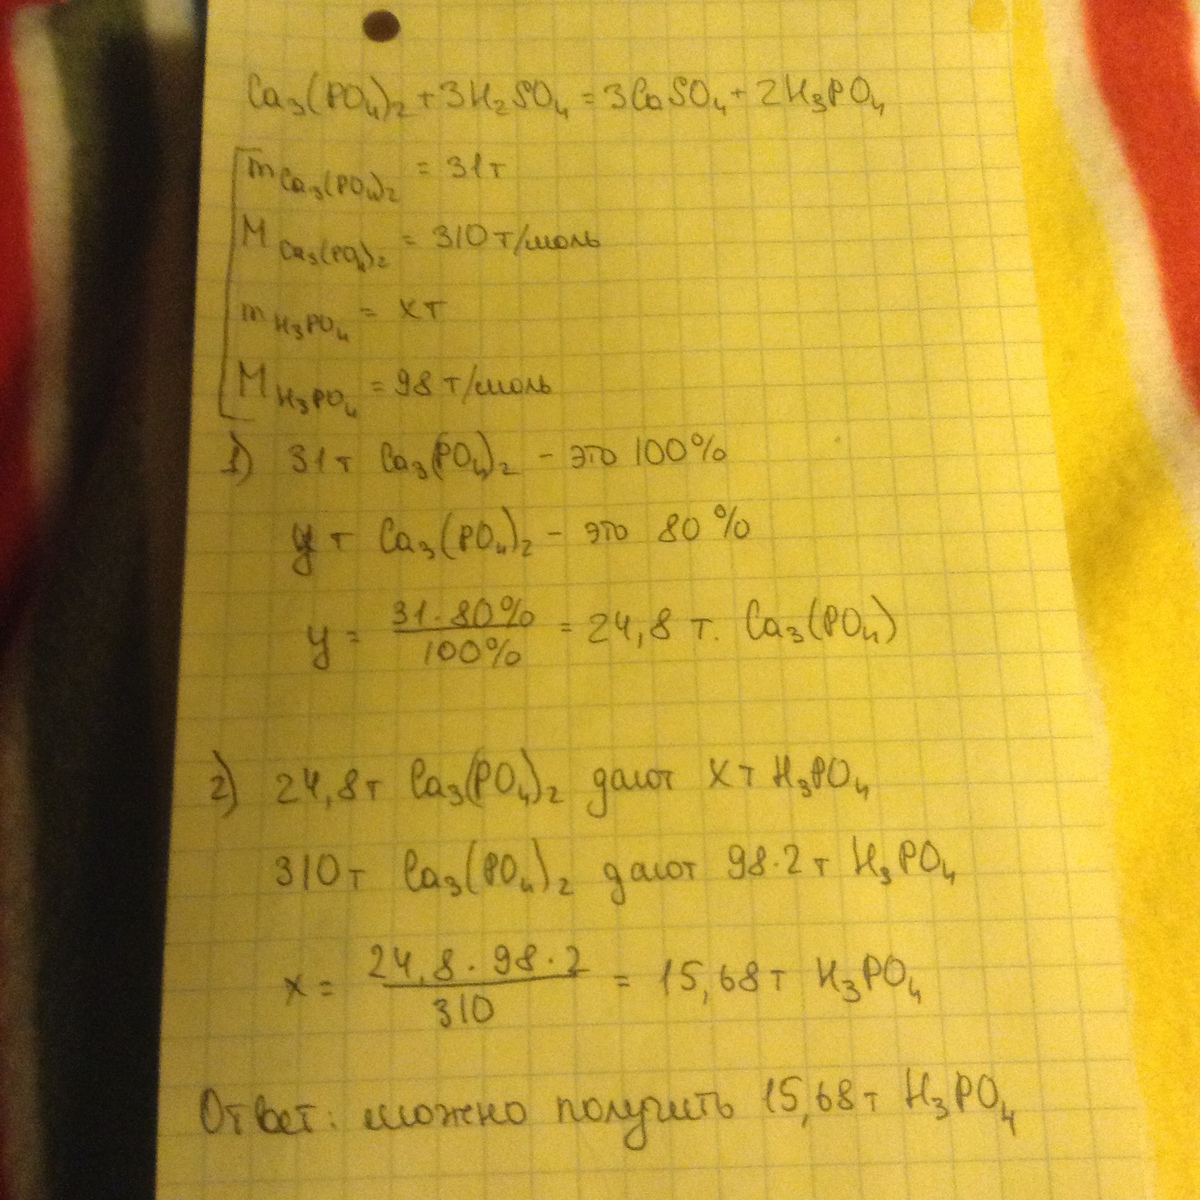 Ca₃(PO₄)₂ + 3H₂SO₄ = 3CaSO₄ + 2H₃PO₄
m Ca₃(PO₄)₂ = 31т
M Ca₃(PO₄)₂ = 310 т/моль
m H₃PO₄ = xт
M H₃PO₄ = 98 т/моль
1) 31т Ca₃(PO₄)₂ - это 100%
y т Ca₃(PO₄)₂ - это 80%
y = 31·80% / 100% = 24,8 т. Ca₃(PO₄)
2) 24,8т Ca₃(PO₄)₂ дают x т H₃PO₄
310т Ca₃(PO₄)₂ дают 98·2 т H₃PO₄
x = 24,8·98·2 / 310 = 15,68т H₃PO₄
Ответ: можно получить 15,68т H₃PO₄